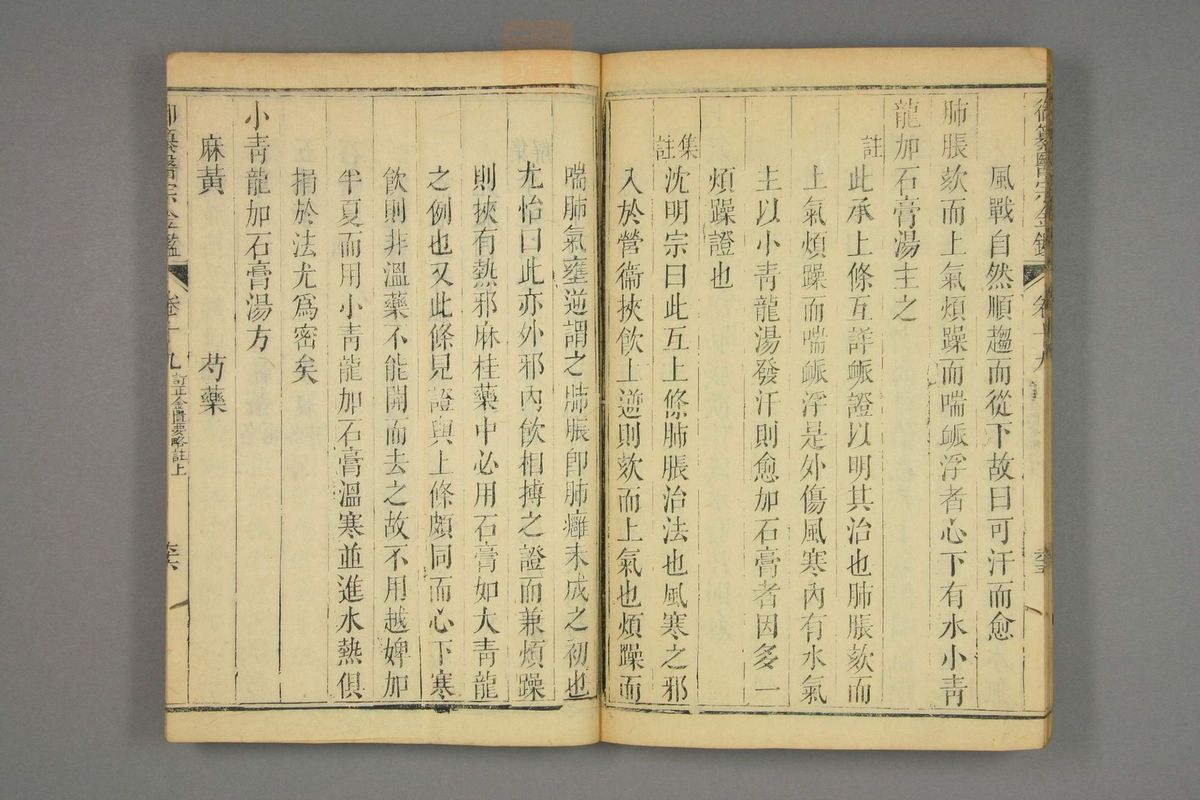 御纂醫宗金鑑 卷十九
風戰自然順趨而從下故曰可汗而愈
肺脹欬而上氣煩躁而喘脈浮者心下有水小青
龍加石膏湯主之
註
此承上條互詳脈證以明其治也肺脹欬而
上氣煩躁而喘脈浮是外傷風寒內有水氣
主以小青龍湯發汗則愈加石膏者因多一
煩躁證也
集註
沈明宗曰此互上條肺脹治法也風寒之邪
入於營衞挾飲上逆則欬而上氣也煩躁而
喘肺氣壅逆謂之肺脹卽肺癰未成之初也
尤怡曰此亦外邪內飲相搏之證而兼煩躁
則挾有熱邪麻桂藥中必用石膏如大青龍
之例也又此條見證與上條頗同而心下寒
飲則非溫藥不能開而去之故不用越婢加
半夏而用小青龍加石膏溫寒並進水熱俱
捐於法尤爲密矣
小青龍加石膏湯方
麻黃 芍藥
御纂醫宗金鑑 卷十九 訂正金匱要略註上